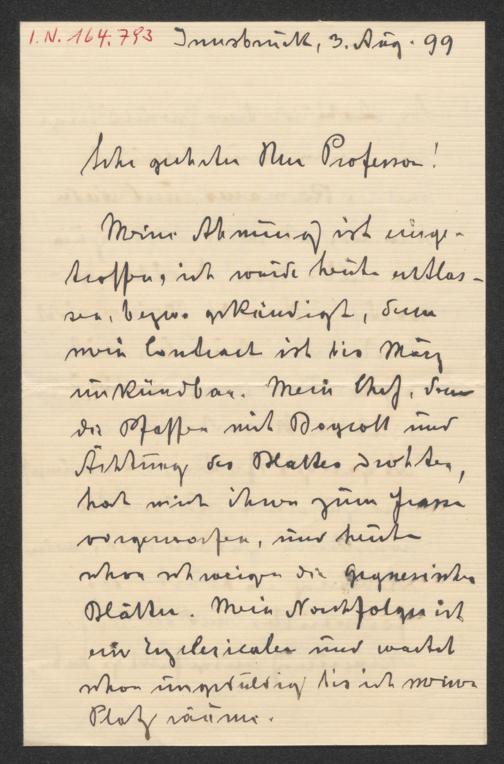 I.N. 164.793 Innsbruck, 3. Aug. 99
Sehr geehrter Herr Professor!
Meine Ahnung ist einge-
troffen, ich wurde heute entlas-
sen, bezw. gekündigt, denn
mein Contract ist bis März
unkündbar. Mein Chef, dem
die Pfaffen mit Boycott und
Ächtung des Blattes drohten,
hat mich ihnen zum Frasse
vorgeworfen, und heute
schon schweigen die gegnerischen
Blätter. Mein Nachfolger ist
ein Erzclericaler und wartet
schon ungeduldig bis ich meinen
Platz räume.